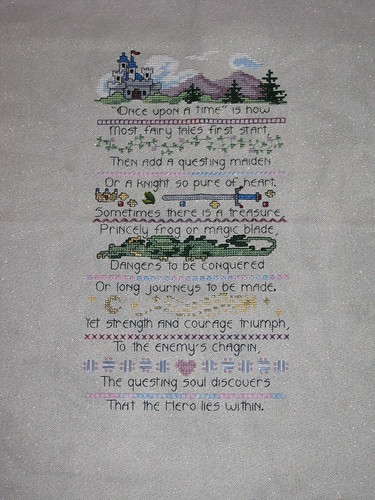 "Once upon a time" is how
Most fairy tales first start,
Then add a questing maiden
Or a knight so pure of heart.
Sometimes there is a treasure,
Princely frog or magic blade,
Dangers to be conquered
Or long journeys to be made.
Yet strength and courage triumph,
To the enemy's chagrin,
The questing soul discovers
That the Hero lies within.